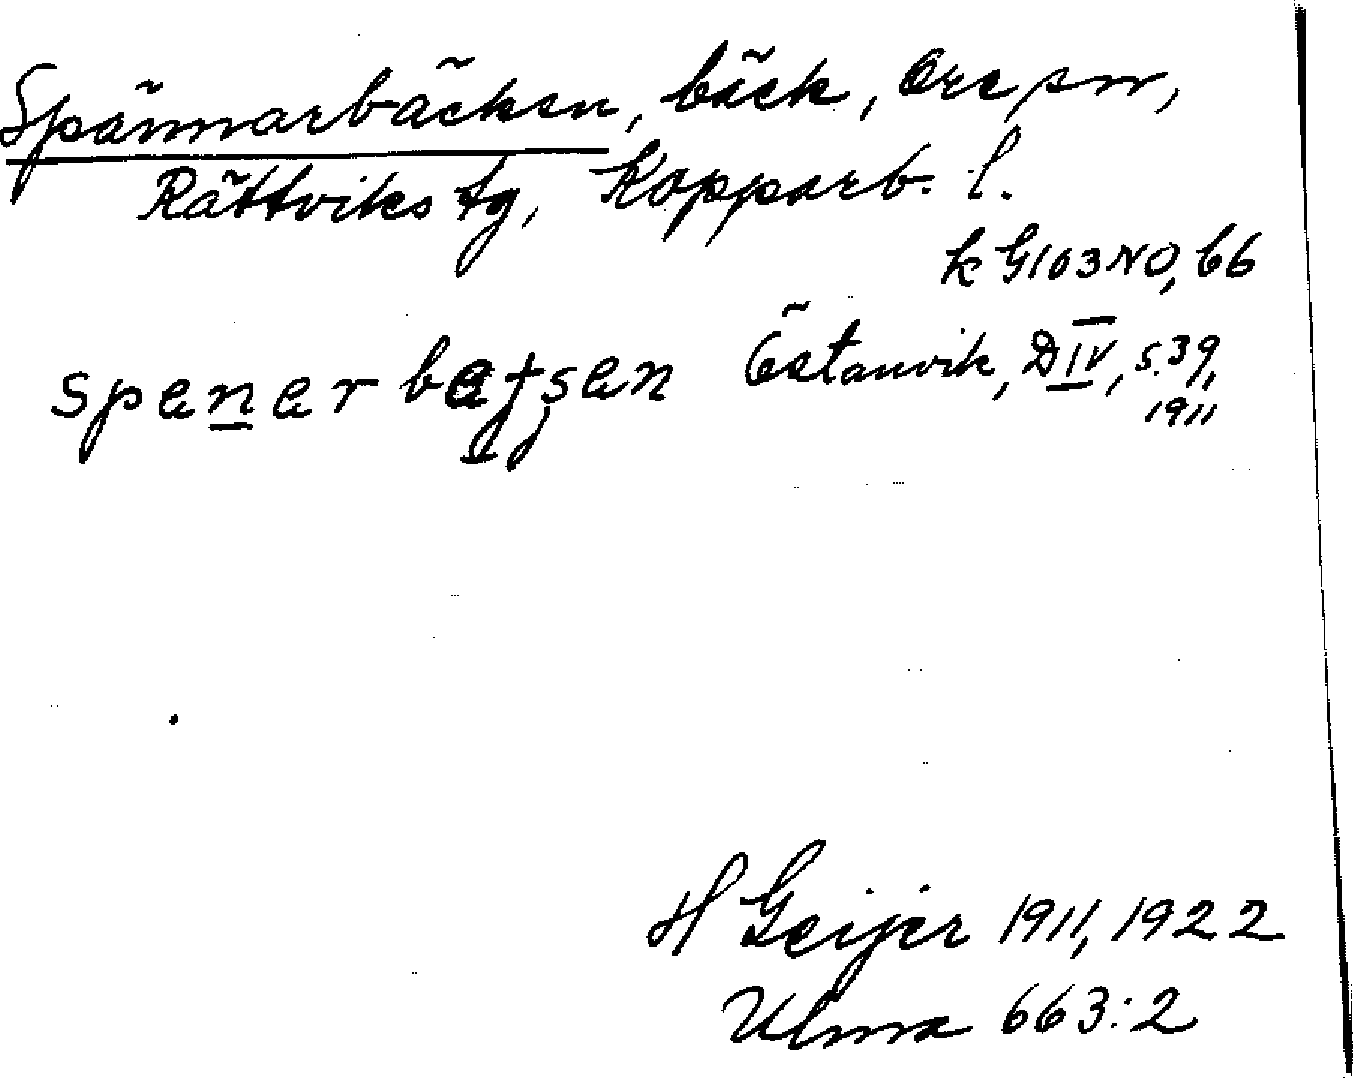 Spännarbäcken, bäck, Ore sn,
Rättviks tg, Kopparb. l.
k G103NO, 66
Östanvik, D IV, s.39,
1911
H Geijer 1911, 1922
Ulma 663:2